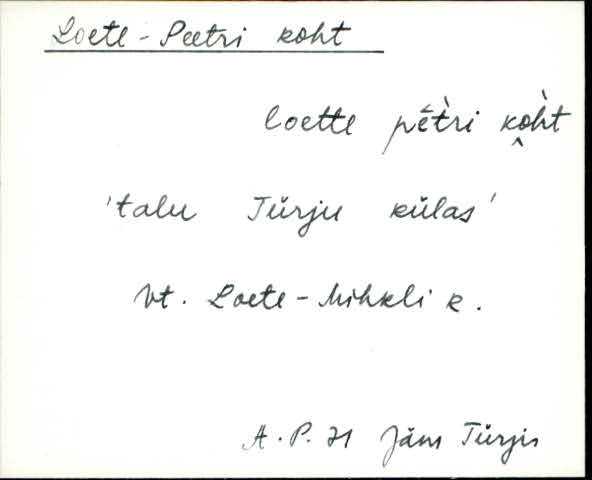 Loete-Peetri koht
loette pē̆t̀ri ko̭h̀t
'talu Türju külas'
Vt. Loete-Mihkli k.
A.P. 71 Jäms Türjis